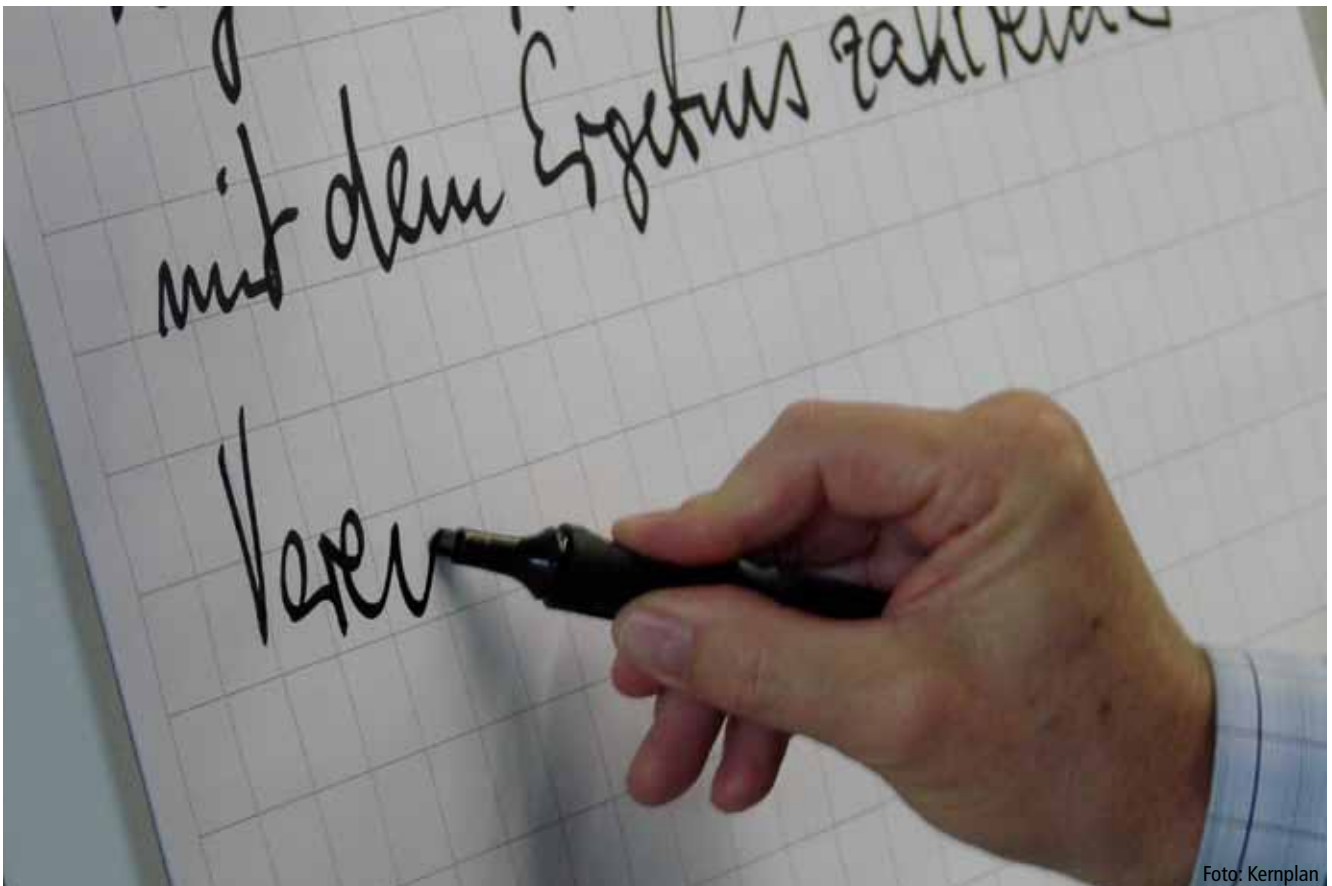 mit dem Ergebnis zahlreiche
Verei
Foto: Kernplan